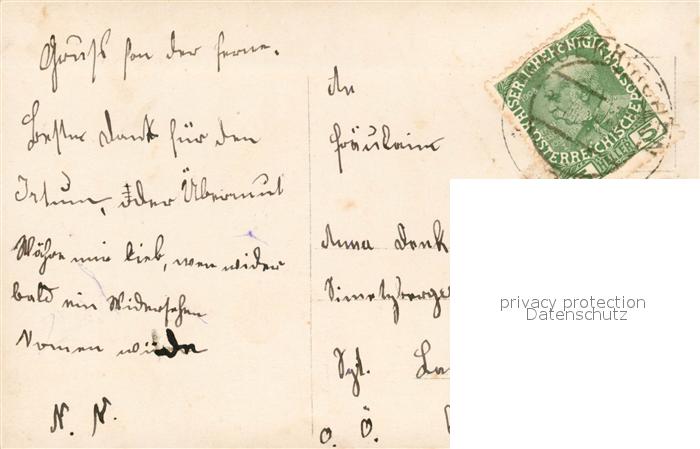 Gruß von der ferne.
Besten Dank für den
Irtum, oder Übermut
Währe mir lieb, wen wider
bald ein Widersehen
Nomen würde
N. N.
An
Fräulein
Anna Denk
Simetzberge
Sgt. La
O. Ö.
KAISERLICHE KÖNIGLICHE
ÖSTERREICHISCHE POST
5 HELLER 5
privacy protection
Datenschutz